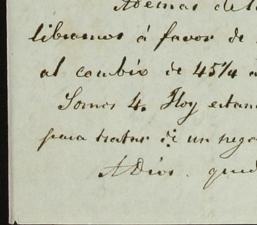 Ademas de l
libramos á favor de
al cambio de 45 1/4 a
Somos 4. Hoy estam
para tratar de un nego
A Dios. qued